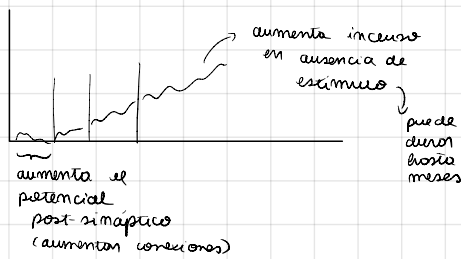 aumenta incluso
en ausencia de
estímulo
puede
durar
hasta
meses
aumenta el
potencial
post-sináptico
(aumentan conexiones)